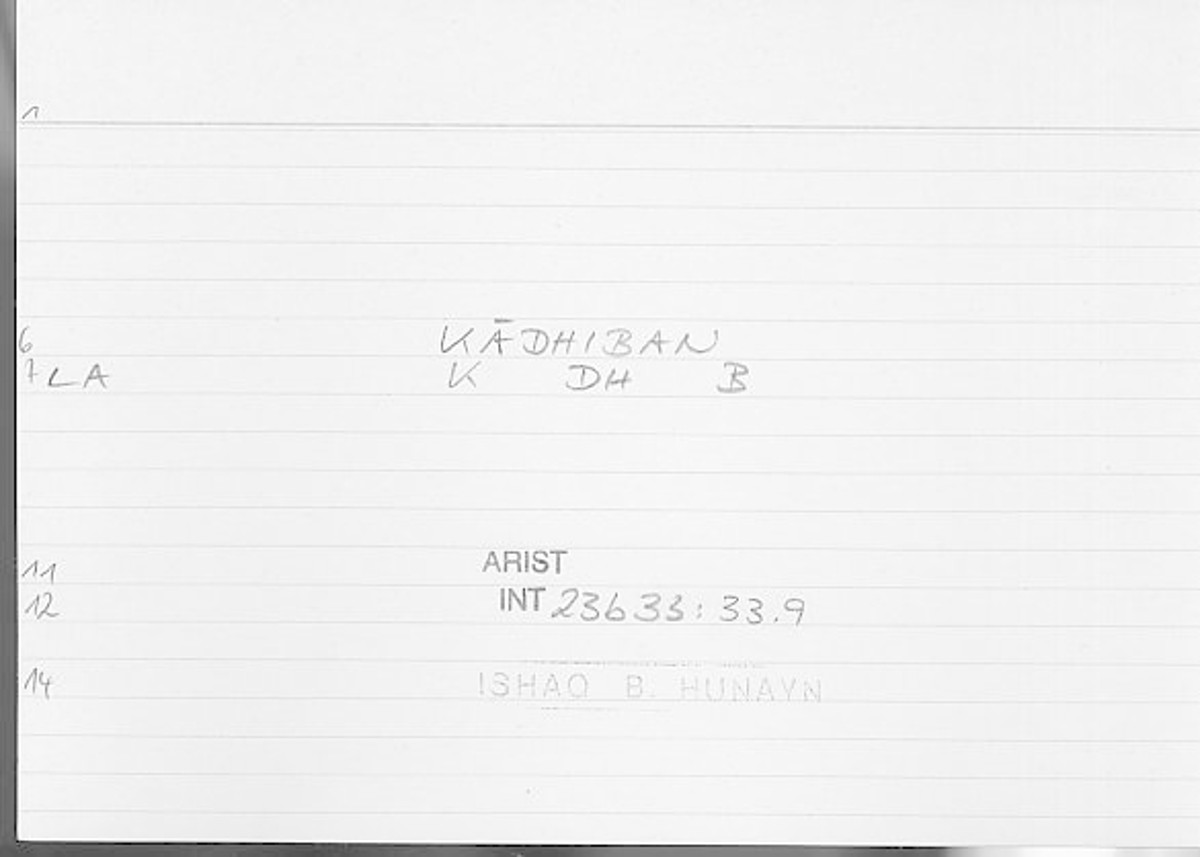 1
6 KĀDHIBAN
7 LA K DH B
11 ARIST
12 INT 23b33: 33.9
14 ISHAQ B. HUNAYN